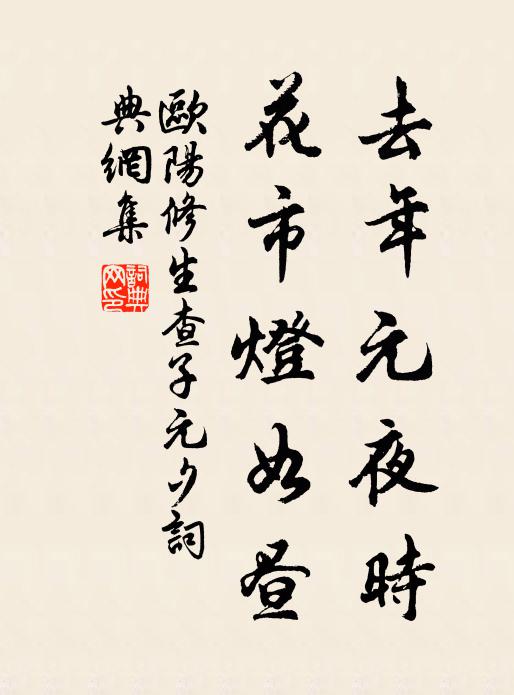 去年元夜時
花市燈如晝
歐陽修生查子元夕詞
典網集
詞典網印